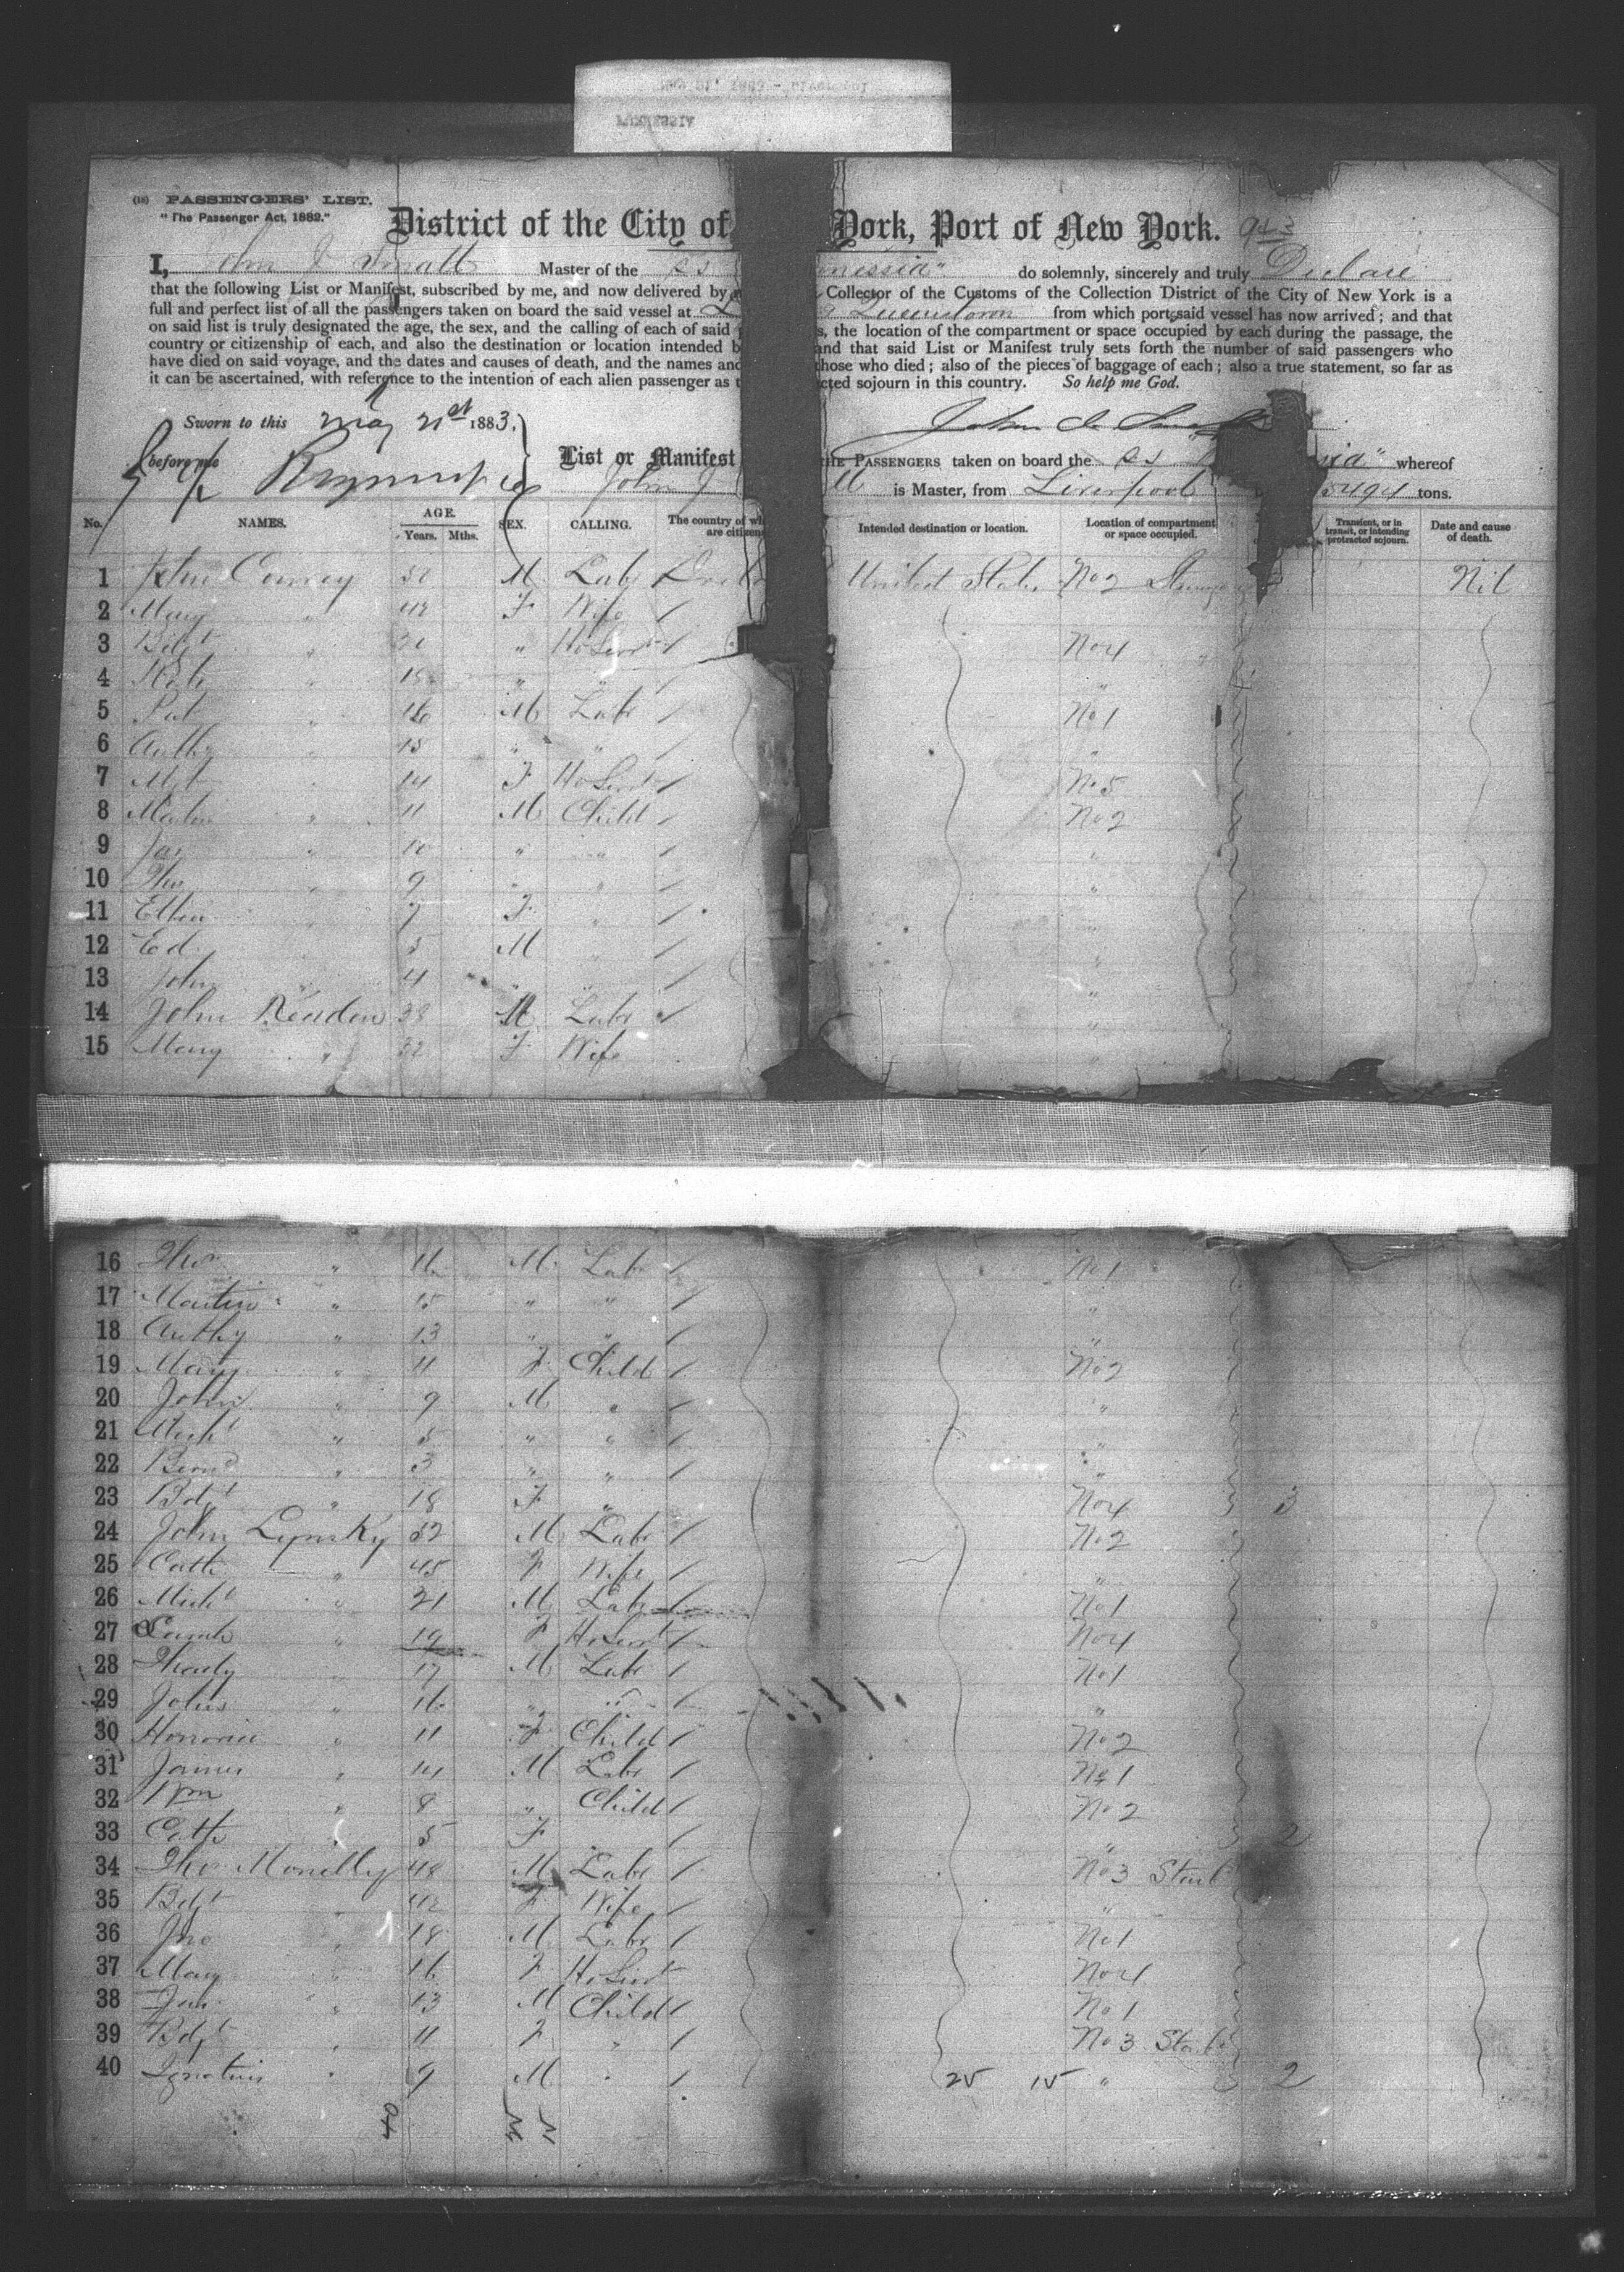 (18) PASSENGERS' LIST.
"The Passenger Act, 1882."
District of the City of York, Port of New York. 943
I, John J Small Master of the SS onessia" do solemnly, sincerely and truly Declare
that the following List or Manifest, subscribed by me, and now delivered by Collector of the Customs of the Collection District of the City of New York is a
full and perfect list of all the passengers taken on board the said vessel at Queenstown from which port said vessel has now arrived; and that
on said list is truly designated the age, the sex, and the calling of each of said s, the location of the compartment or space occupied by each during the passage, the
country or citizenship of each, and also the destination or location intended b and that said List or Manifest truly sets forth the number of said passengers who
have died on said voyage, and the dates and causes of death, and the names and those who died; also of the pieces of baggage of each; also a true statement, so far as
it can be ascertained, with reference to the intention of each alien passenger as t cted sojourn in this country. So help me God.
Sworn to this May 21st 1883.
John J Small
before me
List or Manifest THE PASSENGERS taken on board the SS ia" whereof
John J ll is Master, from Liverpool 5494 tons.
No. NAMES. AGE. Years. Mths. SEX. CALLING. The country of wh are citizen Intended destination or location. Location of compartment or space occupied. Transient, or in transit, or intending protracted sojourn. Date and cause of death.
1 50 M Labr United States No 2 Nil
2 Mary " 42 F Wife /
3 Bdgt " " Ho Servt / No 4
4 " 18 " " / "
5 Pat " 16 M Labr / No 1
6 Anthy " 15 " " / "
7 Mgt 14 F Ho Servt / No 5
8 Martin " 11 M Child / No 2
9 Jas " 10 " " / "
10 Thos " 9 " " / "
11 Ellen 7 F " / "
12 Ed 5 M " / "
13 John " 4 " " / "
14 John Readen 38 M Labr / "
15 Mary " 32 F Wife
16 Thos " 16 M Labr / No 1
17 Martin " 15 " " / "
18 Anthy " 13 " " / "
19 Mary " 11 F Child / No 2
20 John " 9 M " / "
21 Michl " 5 " " / "
22 Bernd " 3 " " / "
23 Bdgt " 18 F " No 4 3
24 John Lynsky 52 M Labr / No 2
25 Cath " 45 F Wife / "
26 Michl " 21 M Labr / No 1
27 Sarah " 19 F Ho Servt / No 4
28 Thady " 17 M Labr / No 1
29 John " 16 " " / "
30 Honoria " 11 F Child / No 2
31 James " 14 M Labr / No 1
32 Wm " 8 " Child / No 2
33 Cath " 5 F " / " 2
34 Thos Monelly 48 M Labr / No 3 Starb
35 Bdgt " 42 F Wife / "
36 Jno " 18 M Labr / No 1
37 Mary " 16 F Ho Servt No 4
38 " 13 M Child / No 1
39 Bdgt " 11 F " / No 3 Starb
40 Ignatius " 9 M " / 25 15 " 2